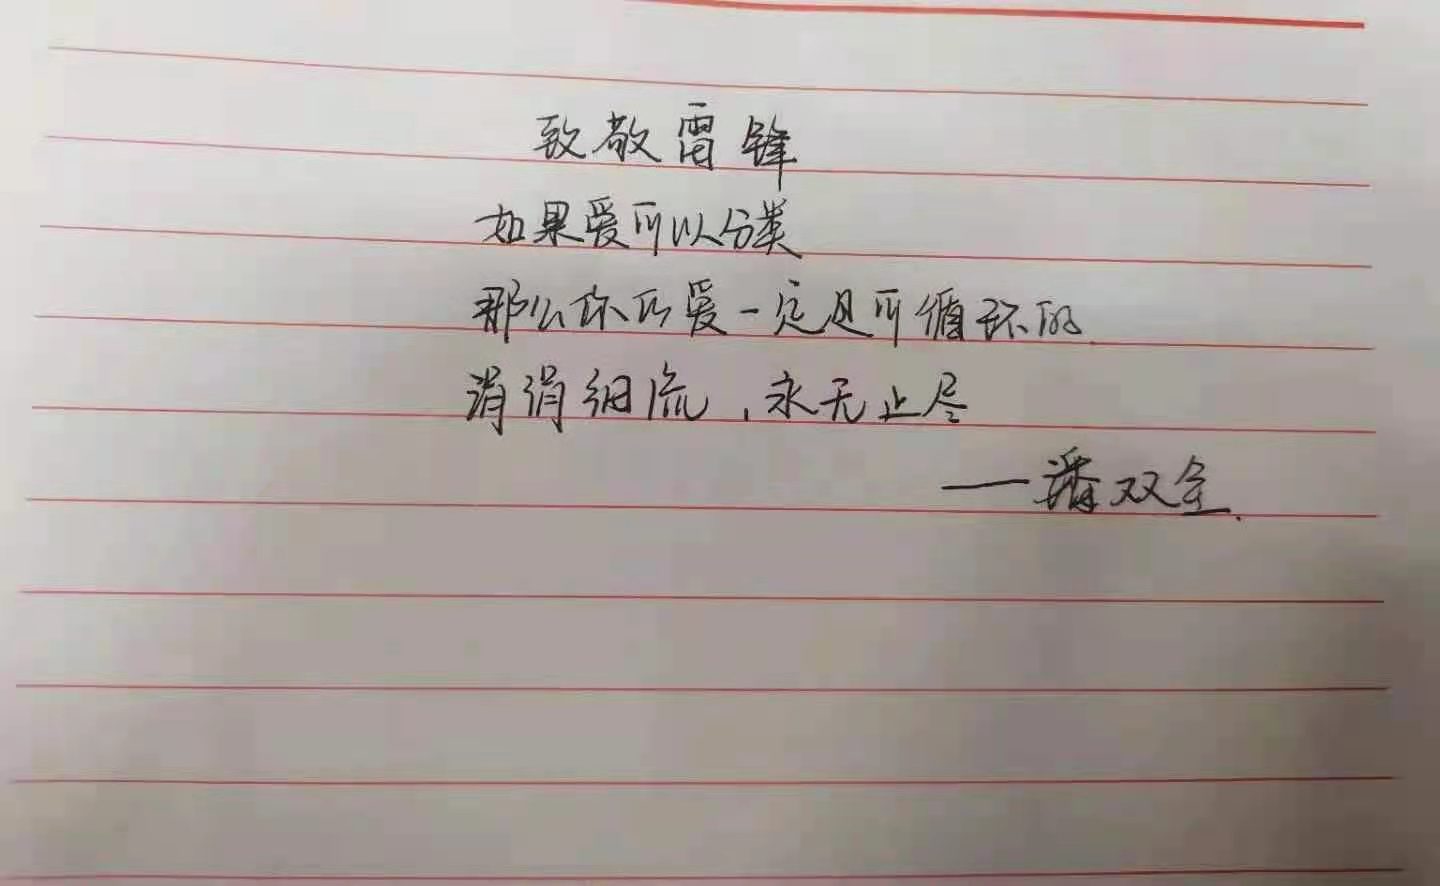 致敬雷锋
如果爱可以分类
那么你的爱一定是可循环的
涓涓细流，永无止尽
——潘双全.